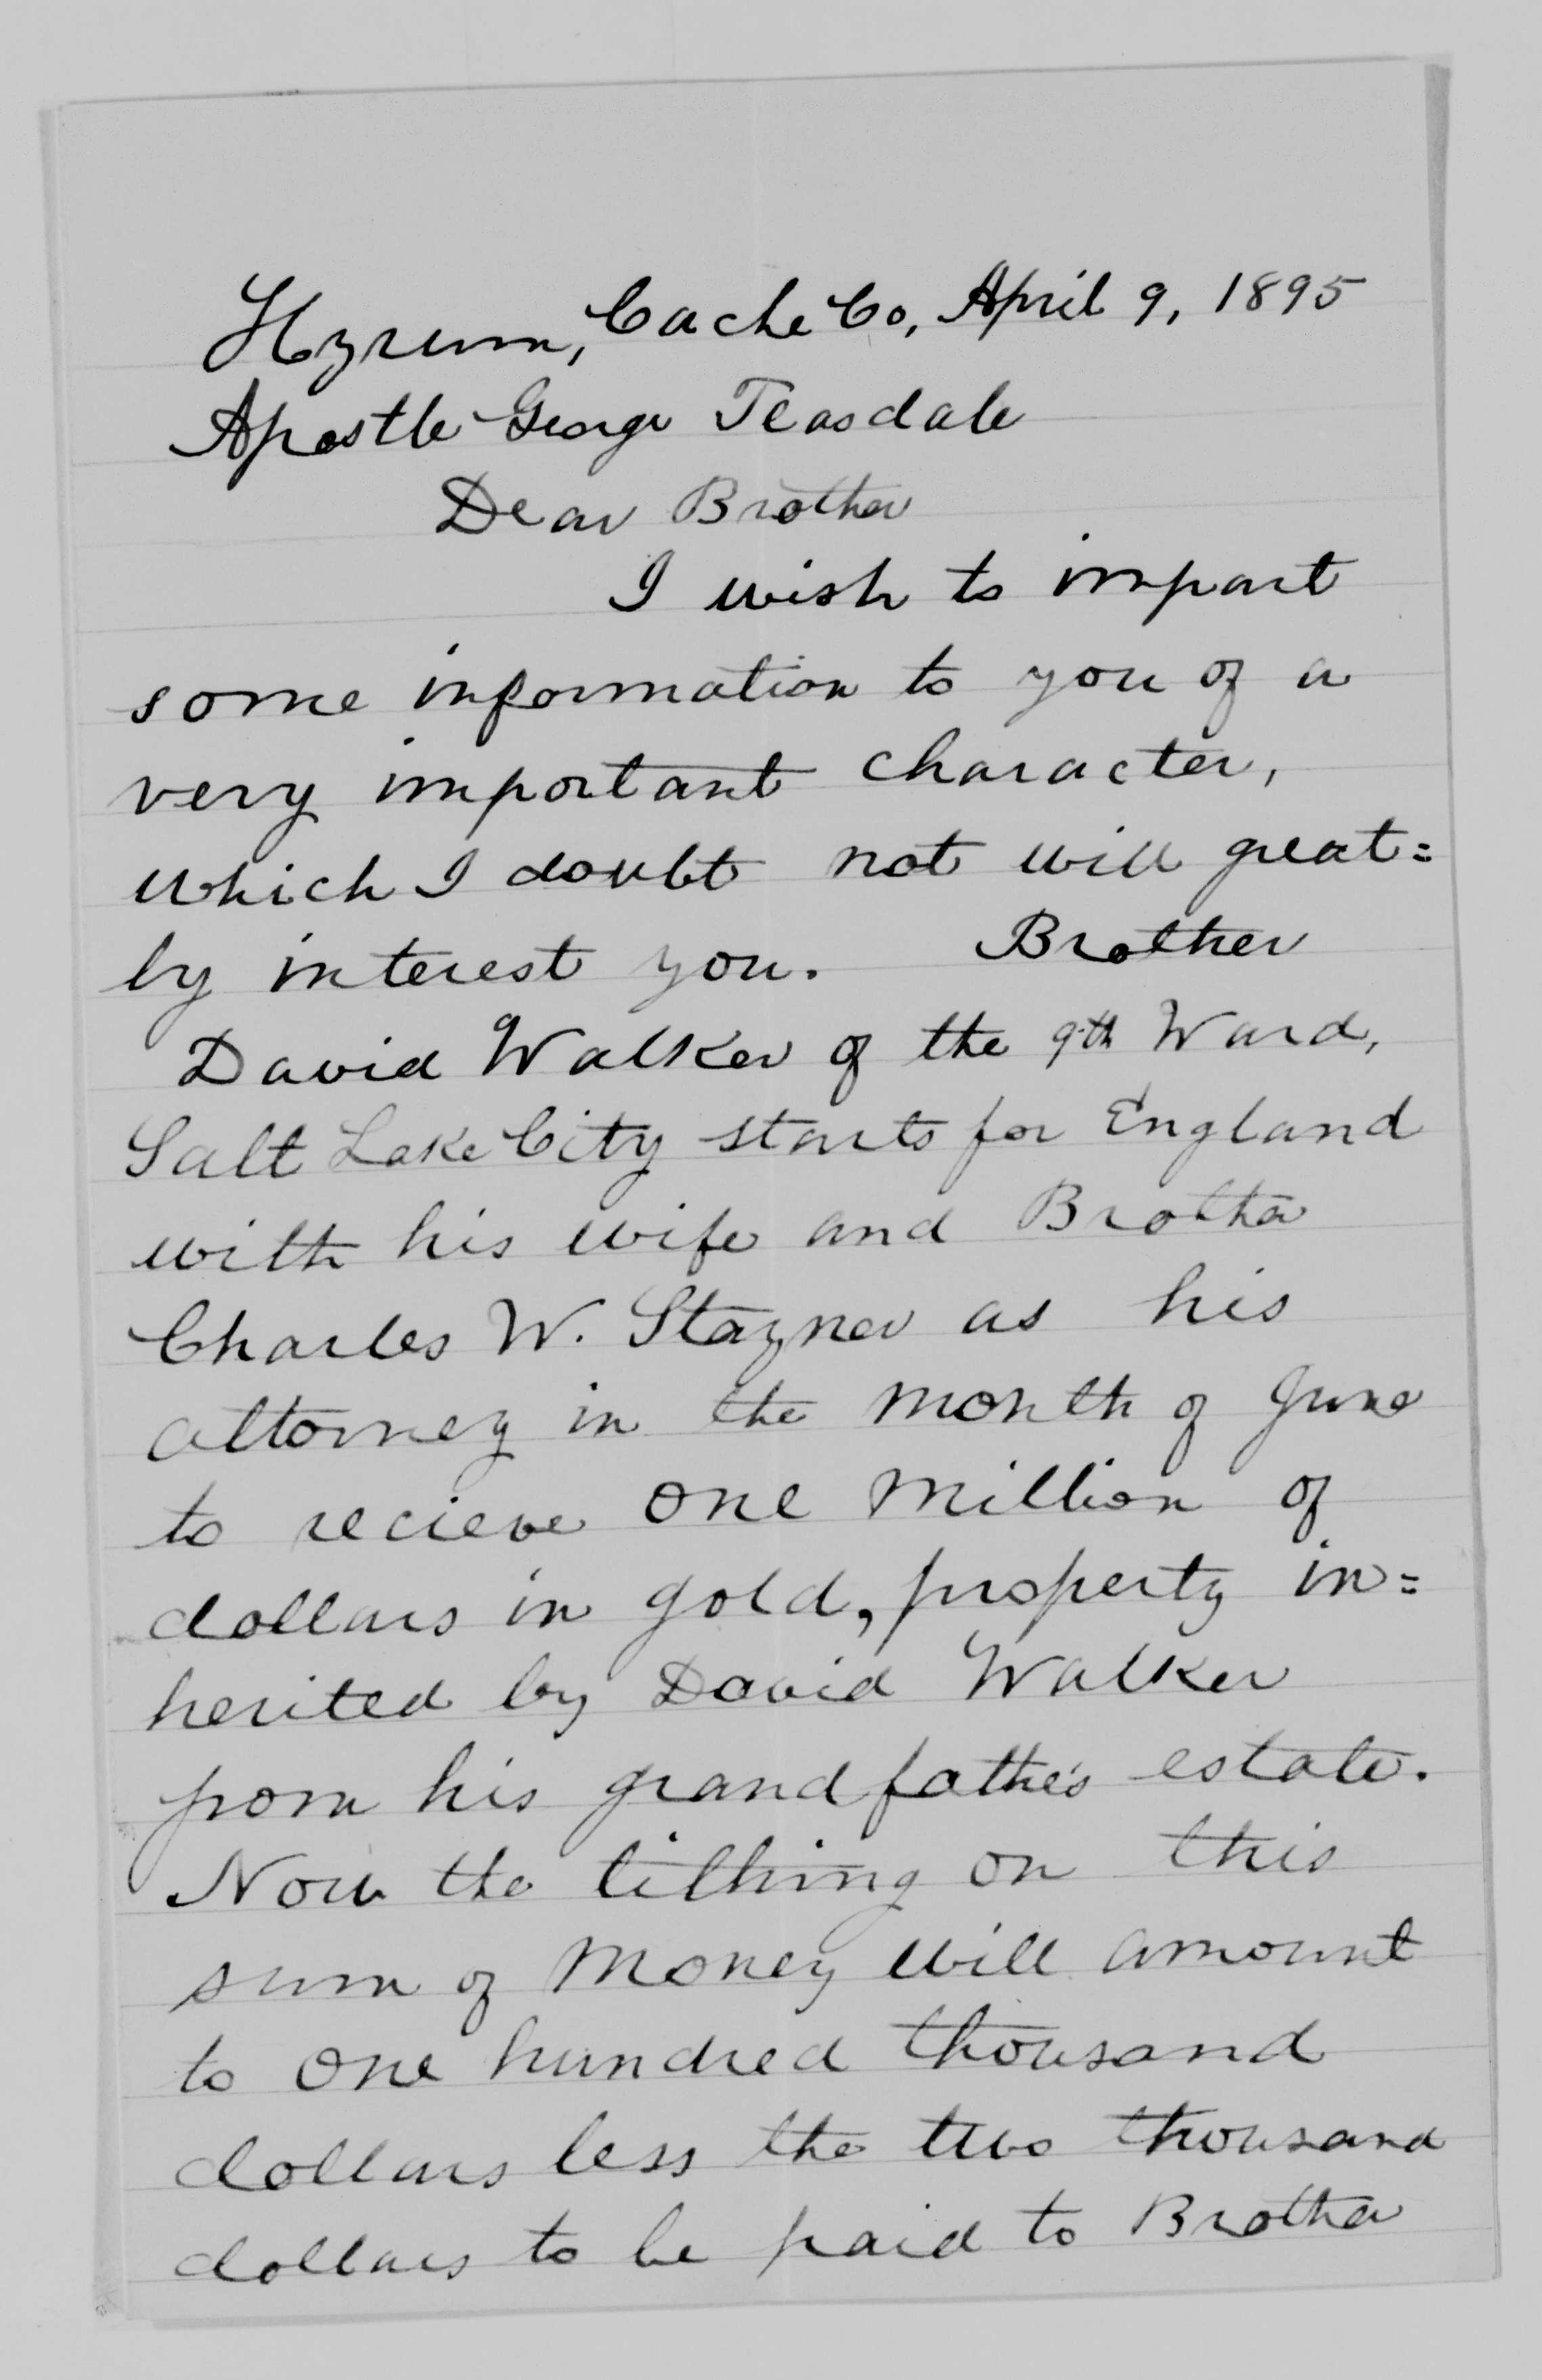 Hyrum, Cache Co, April 9, 1895
Apostle George Teasdale
Dear Brother
I wish to impart
some information to you of a
very important character,
which I doubt not will great=
ly interest you. Brother
David Walker of the 9th Ward,
Salt Lake City starts for England
with his wife and Brother
Charles W. Stayner as his
attorney in the month of June
to recieve one million of
dollars in gold, property in=
herited by David Walker
from his grandfather's estate.
Now the tithing on this
sum of money will amount
to one hundred thousand
dollars less the two thousand
dollars to be paid to Brother